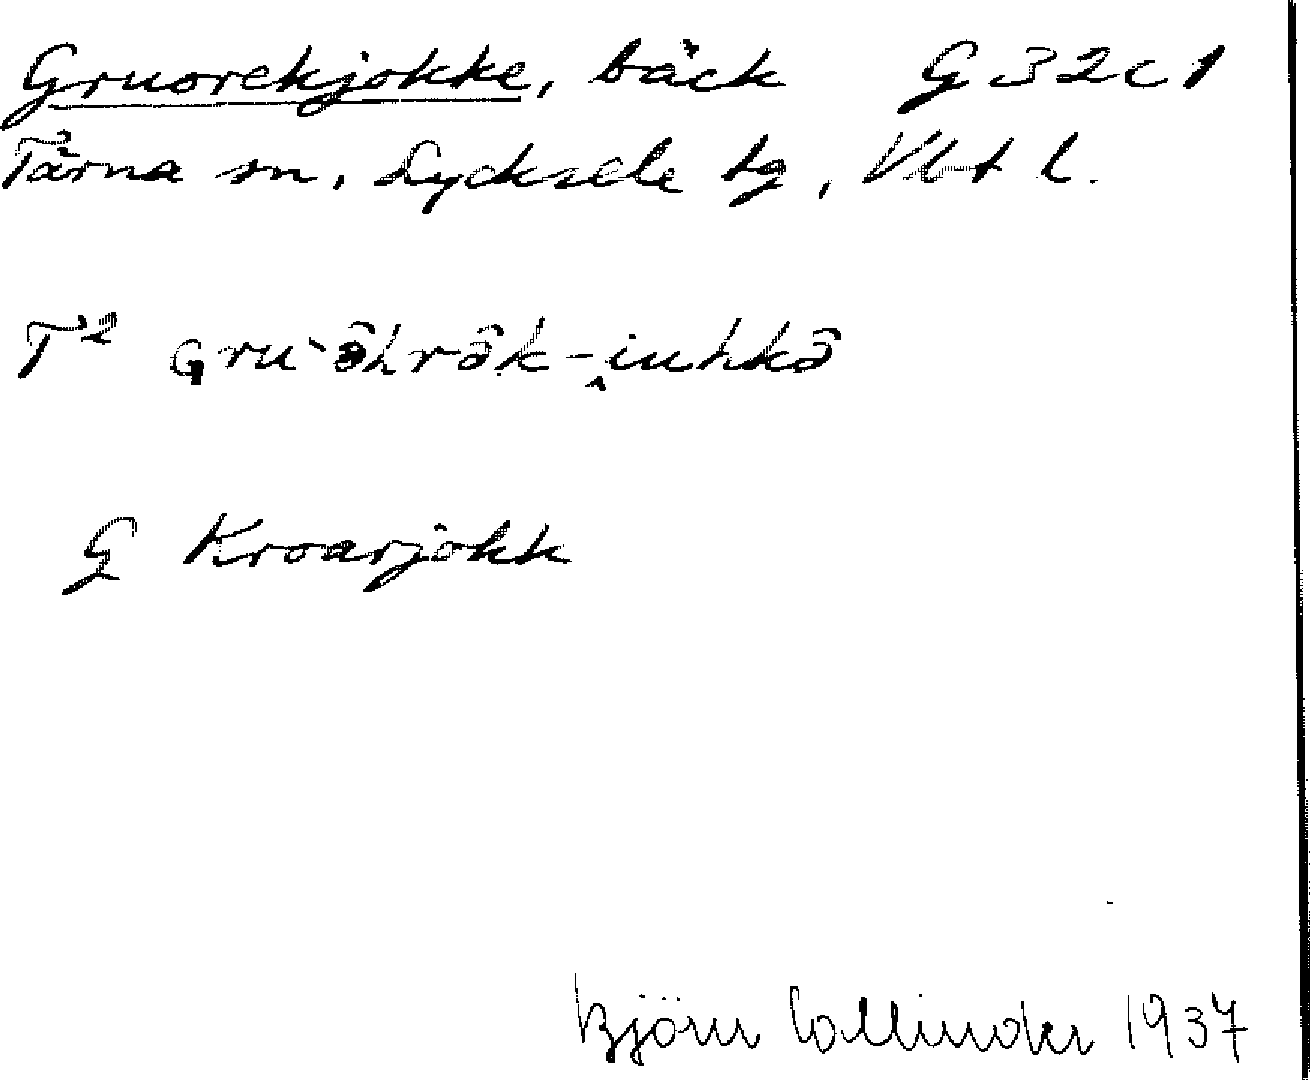 Gruorekjokke, bäck G 32 c 1
Tärna sn, Lycksele tg, Vbt l.
T² Gru`ə̂hrə̂k-i̭uhkə̂
G Kroarjokk
Björn Collinder 1937